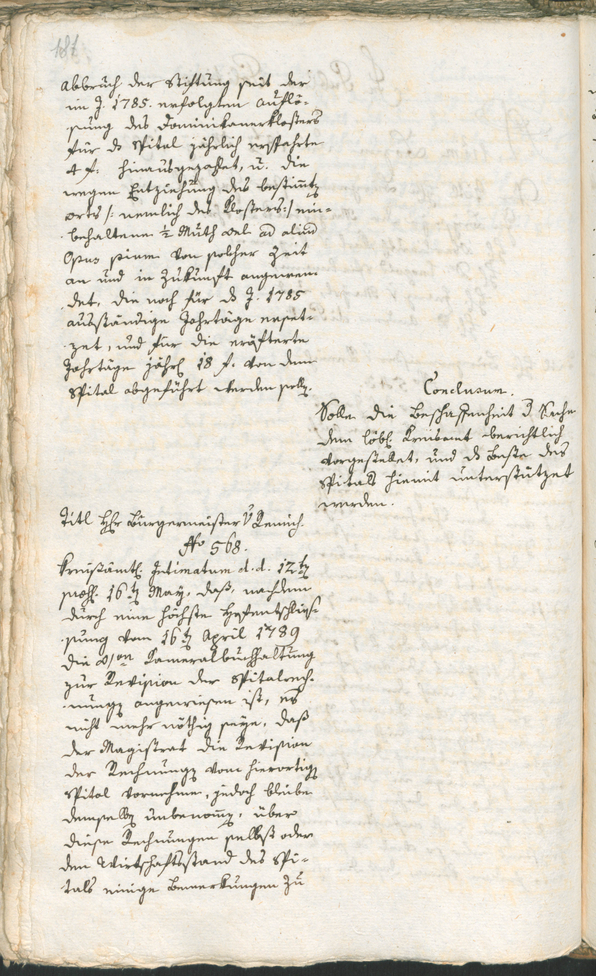 181
Abbruch der Stiftung seit der
im J. 1785. erfolgten Auflö-
sung des Dominikanerklosters
für ds Spital jährlich ersparte
4 f. hinausgezahlet, u. die
wegen Entziehung des bestimten
orts /: nemlich des Klosters :/ ein-
behaltene ½ Muth vel ad aliud
Opus pium von solcher Zeit
an und in Zukunft angewen-
det, die noch für ds J. 1785
ausständige Jahrtäge erset-
zet, und für die eräfterte
Jahrtäge jährl. 18 f. von dem
Spital abgeführt werden solle.
Conclusum.
Solle die Beschaffenheit d. Sache
dem löbl. Kreisamt berichtlich
vorgestellet, und ds Beste des
Spitals hiemit unterstützet
werden.
Titl Hr Burgermeister v Remich.
No 568.
Kreisämtl. Intimatum d. d. 12ten
præs. 16ten May, daß, nachdem
durch eine höchste Hofentschlies-
sung vom 16ten April 1789
die Kameralbuchhaltung
zur Revision der Spitalrech-
nungen angewiesen ist, es
nicht mehr nöthig seye, daß
der Magistrat die Revision
der Rechnungen vom hierortigen
Spital vornehme, jedoch bleibe
demselben unbenomen, über
diese Rechnungen selbst oder
den Wirtschaftsstand des Spi-
tals einige Bemerkungen zu